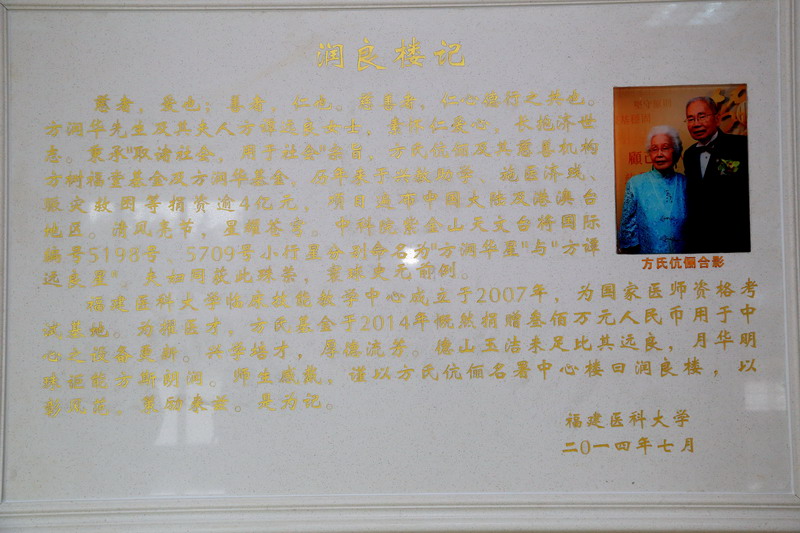 润良楼记
慈者，爱也；善者，仁也。慈善者，仁心德行之共也。
方润华先生及其夫人方谭远良女士，重怀仁爱心，长抱济世
志。秉承"取诸社会，用于社会"宗旨，方氏伉俪及其慈善机构
方树福堂基金及方润华基金，历年来于兴教助学、施医济残、
赈灾救困等捐资逾4亿元，项目遍布中國大陆及港澳台
地区。清风亮节，星耀苍穹。中科院紫金山天文台将国际
编号5198号、5709号小行星分别命名为"方润华星"与"方谭
远良星"。夫妇同获此殊荣，寰球史无前例。
福建医科大学临床技能教学中心成立于2007年，为国家医师资格考
试基地。为擢医才，方氏基金于2014年慨然捐赠叁佰万元人民币用于中
心之设备更新。兴学培才，厚德流芳。德山玉洁未足比其远良，月华明
珠讵能方斯朗润。师生感戴，谨以方氏伉俪名署中心楼曰润良楼，以
彰风范，策励来世。是为记。
福建医科大学
二〇一四年七月
方氏伉俪合影